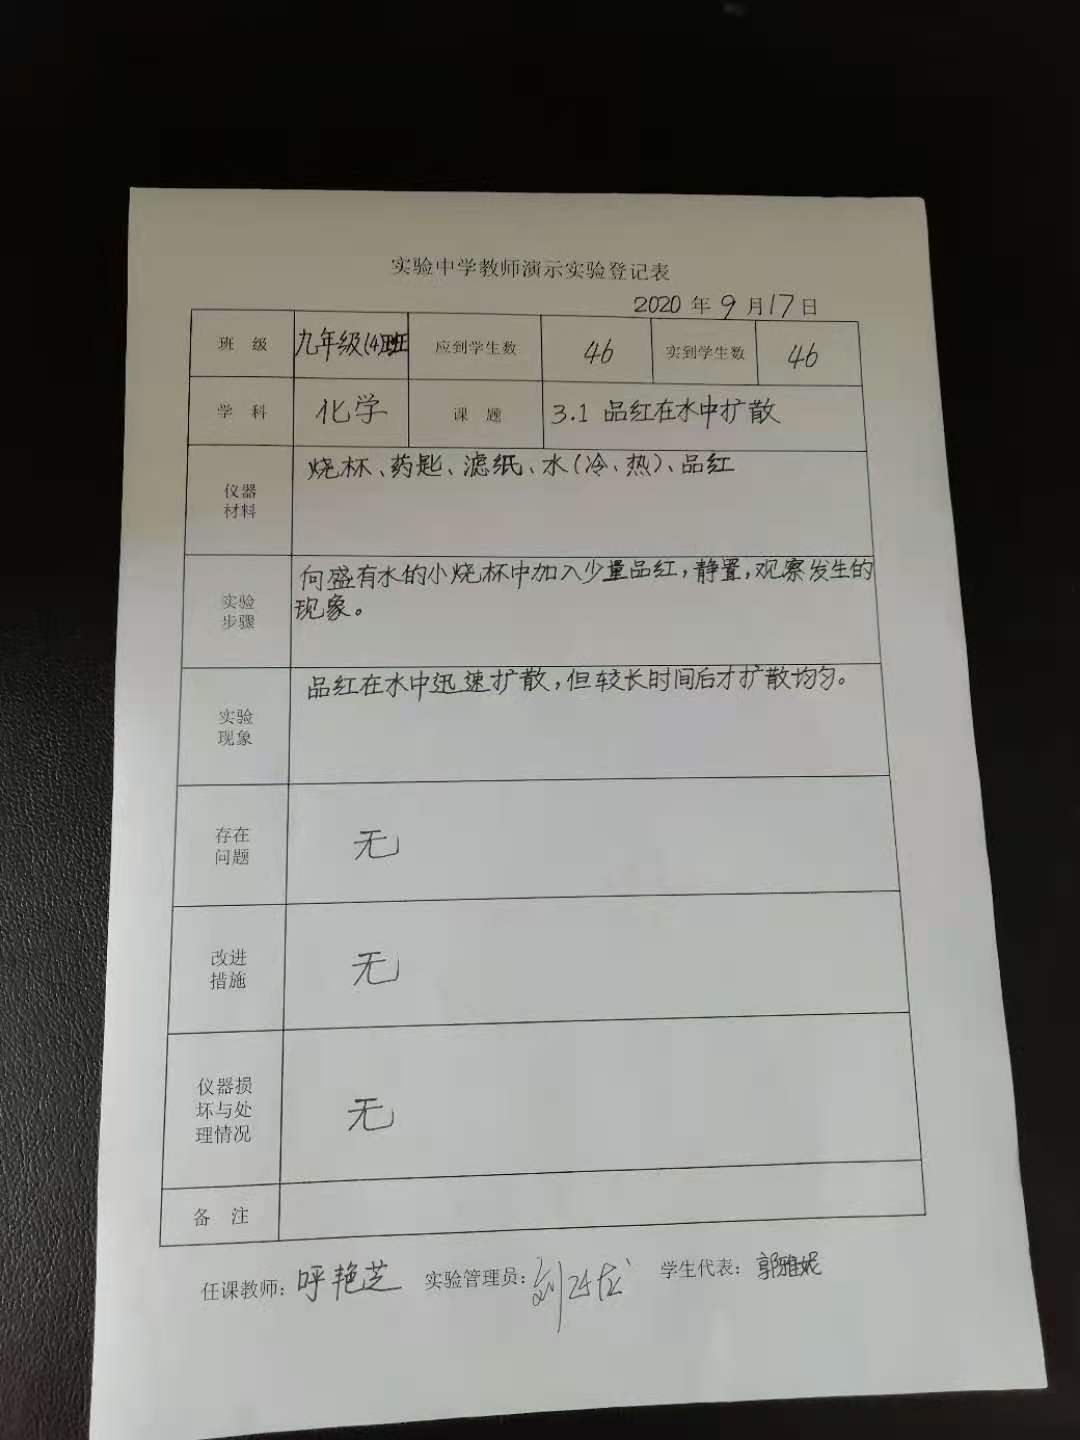 实验中学教师演示实验登记表
2020 年 9 月 17 日
班 级 九年级(4)班 应到学生数 46 实到学生数 46
学 科 化学 课 题 3.1 品红在水中扩散
仪器
材料
烧杯、药匙、滤纸、水(冷、热)、品红
实验
步骤
向盛有水的小烧杯中加入少量品红,静置,观察发生的
现象。
实验
现象
品红在水中迅速扩散,但较长时间后才扩散均匀。
存在
问题
无
改进
措施
无
仪器损
坏与处
理情况
无
备 注
任课教师: 呼艳芝 实验管理员: 刘 学生代表: 郭雅妮